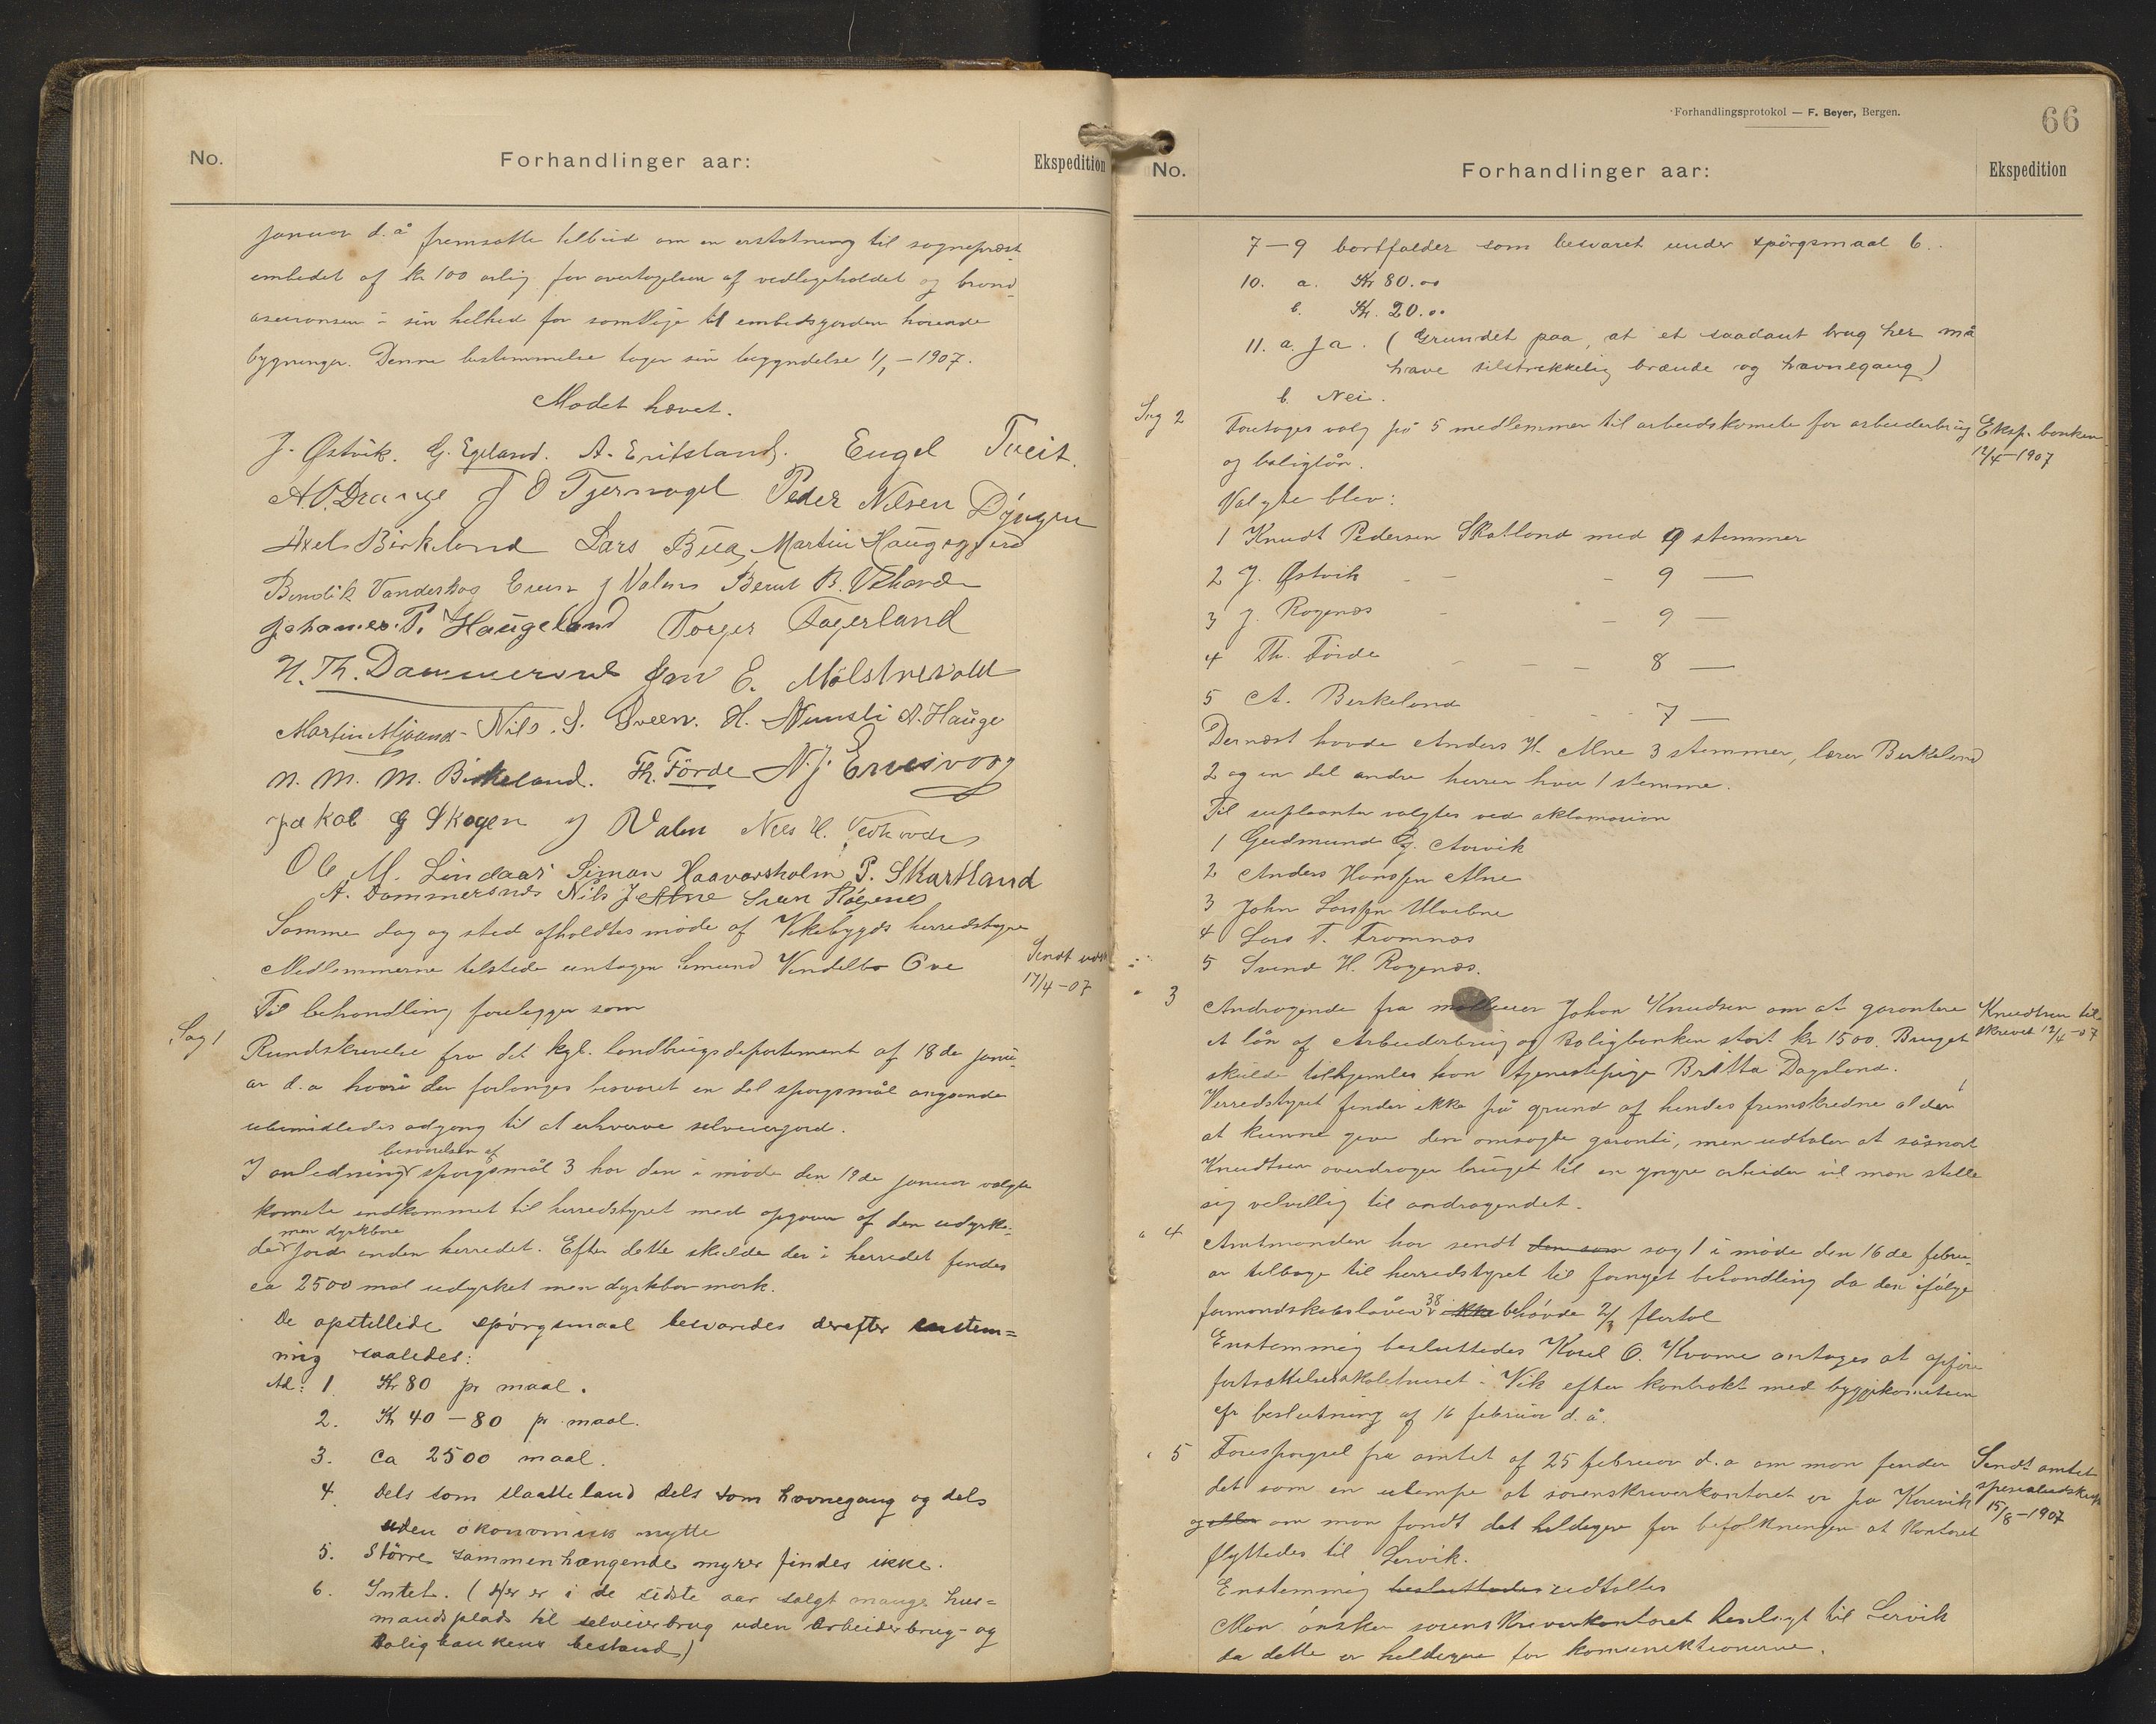 No.
Forhandlinger aar:
Ekspedition
januar d.å fremsatte tilbud om en erstatning til sogneprest-
embedet af kr 100 årlig for overtagelsen af vedligeholdet og brand-
asuransen i sin helhed for samtlige til embedsgarden hørende
bygninger. Denne bestemmelse tager sin begyndelse 1/1 – 1907.
Mødet hævet.
J. Østvik. G. Egeland. A. Eritsland. Engel Tveit.
A. O. Drange J O Tjernagel Peder Nilsen Døngen
Axel Birkeland Lars Bua, Martin Haugsgjerd
Bendik Vandaskog J Valen Bernt B.
Johannes. P. Haugeland Torger Fagerland
H. Th. Dammersnes Jan E. Mölstrevold
Martin Mjaand – Nils. S. Sveen. H. Nernsli A. Hauge
N. M. M. Birkeland. Th. Förde N. J. Ervesvaag
Jakob G Skogen J Valen Nils H. Vedhovde
Ole M. Lindaas Simon Haavarsholm P. Skartland
A. Dammersnes Nils J Alne Sven Rögenes
Samme dag og sted afholdtes møde af Vikebygds herredstyre
Medlemmerne tilstede untagen Simund Vendelbo Ove
Sendt udsk
17/4 – 07
Til behandling forelegger som
Sag 1
Rundskrivelse fra det kgl. landbrugsdepartement af 18de janu-
ar d.a hvori der forlanges besvaret en del spørgsmål angående
ubemidledes adgang til at erhverve selveierjord.
besvarelsen af
I anledning spørgsmål 3 har den i møde den 19de januar valgte
komite indkommet til herredstyret med opgaver af den udyrke-
men dyrkbare
de jord inden herredet. Efter dette skulde der i herredet findes
ca 2500 mål udyrket men dyrkbar mark.
De opstillede spörgsmaal besvaredes derefter enstem=
mig saaledes:
Ad: 1. Kr 80 pr maal.
2. Kr 40 – 80 pr maal.
3. Ca 2500 maal.
4. Dels som slaatteland dels som havnegang og dels
uden ökonomisk nytte
5. Större sammenhængende myrer findes ikke.
6. Intet. (Her er i de sidste aar solgt mange hus=
mandsplads til selveierbrug uden Arbeiderbrug- og
Boligbankens bestand)
Forhandlingsprotokol — F. Beyer, Bergen.
66
No.
Forhandlinger aar:
Ekspedition
7 – 9 bortfalder som besvaret under spörgsmaal 6.
10. a. Kr 80.00
b. Kr. 20.00
11. a. Ja. (Grundet paa, at et saadant brug her må
have tilstrekkelig brænde og havnegang)
b. Nei.
Sag 2
Foretages valg på 5 medlemmer til arbeidskomite for arbeiderbrug
og boliglån.
Eksp. banken
12/4 – 1907
Valgte blev:
1 Knudt Pedersen Skatland med 9 stemmer
2 J. Østvik – – 9 —
3 J. Rogenæs – – 9 —
4 Th. Förde – – – 8 —
5 A. Birkeland – – – 7 —
Dernæst havde Anders H. Alne 3 stemmer, lærer Birkeland
2 og en del andre herrer hver 1 stemme.
Til supleanter valgtes ved aklamasion
1 Gudmund G. Aarvik
2 Anders Hanssen Alne
3 John Larssen Ulvebne
4 Lars T. Framnæs
5 Svend H. Rogenæs.
" 3
Andragende fra Johan Knudsen om at garantere
et lån af Arbeiderbrug og Boligbanken stort kr 1500. Bruget
skulde tilhjemles han tjenestepige Britta Dagsland.
Knudtsen til-
skrevet 12/4 – 07
Herredstyret finder ikke på grund af hendes fremskredne alder
at kunne give den omsøgte garanti, men udtaler at såsnart
Knudtsen overdrager bruget til en yngre arbeider vil man stelle
sig velvillig til andragendet.
" 4
Amtmanden har sendt den som sag 1 i møde den 16de febru-
ar tilbage til herredstyret til fornyet behandling da den ifølge
formandskabsloven § 38 ikke behøvde 2/3 flertal
Enstemmig besluttedes Karel O. Kvame antages at opføre
fortsættelsesskolehuset i Vik efter kontrakt med byggekomiteen
efr beslutning af 16 februar d.å.
" 5
Forespørgsel fra amtet af 25 februar d.a om man finder
det som en ulempe at sorenskriverkontoret er på Korsvik
og eller om man fandt det heldigere for befolkningen at kontoret
flyttedes til Lervik.
Sendt amtet
spesialudskrift
15/8 – 1907
Enstemmig besluttedes udtaltes
Man ønsker sorenskriverkontoret henlagt til Lervik
da dette er heldigere for komunikationerne.